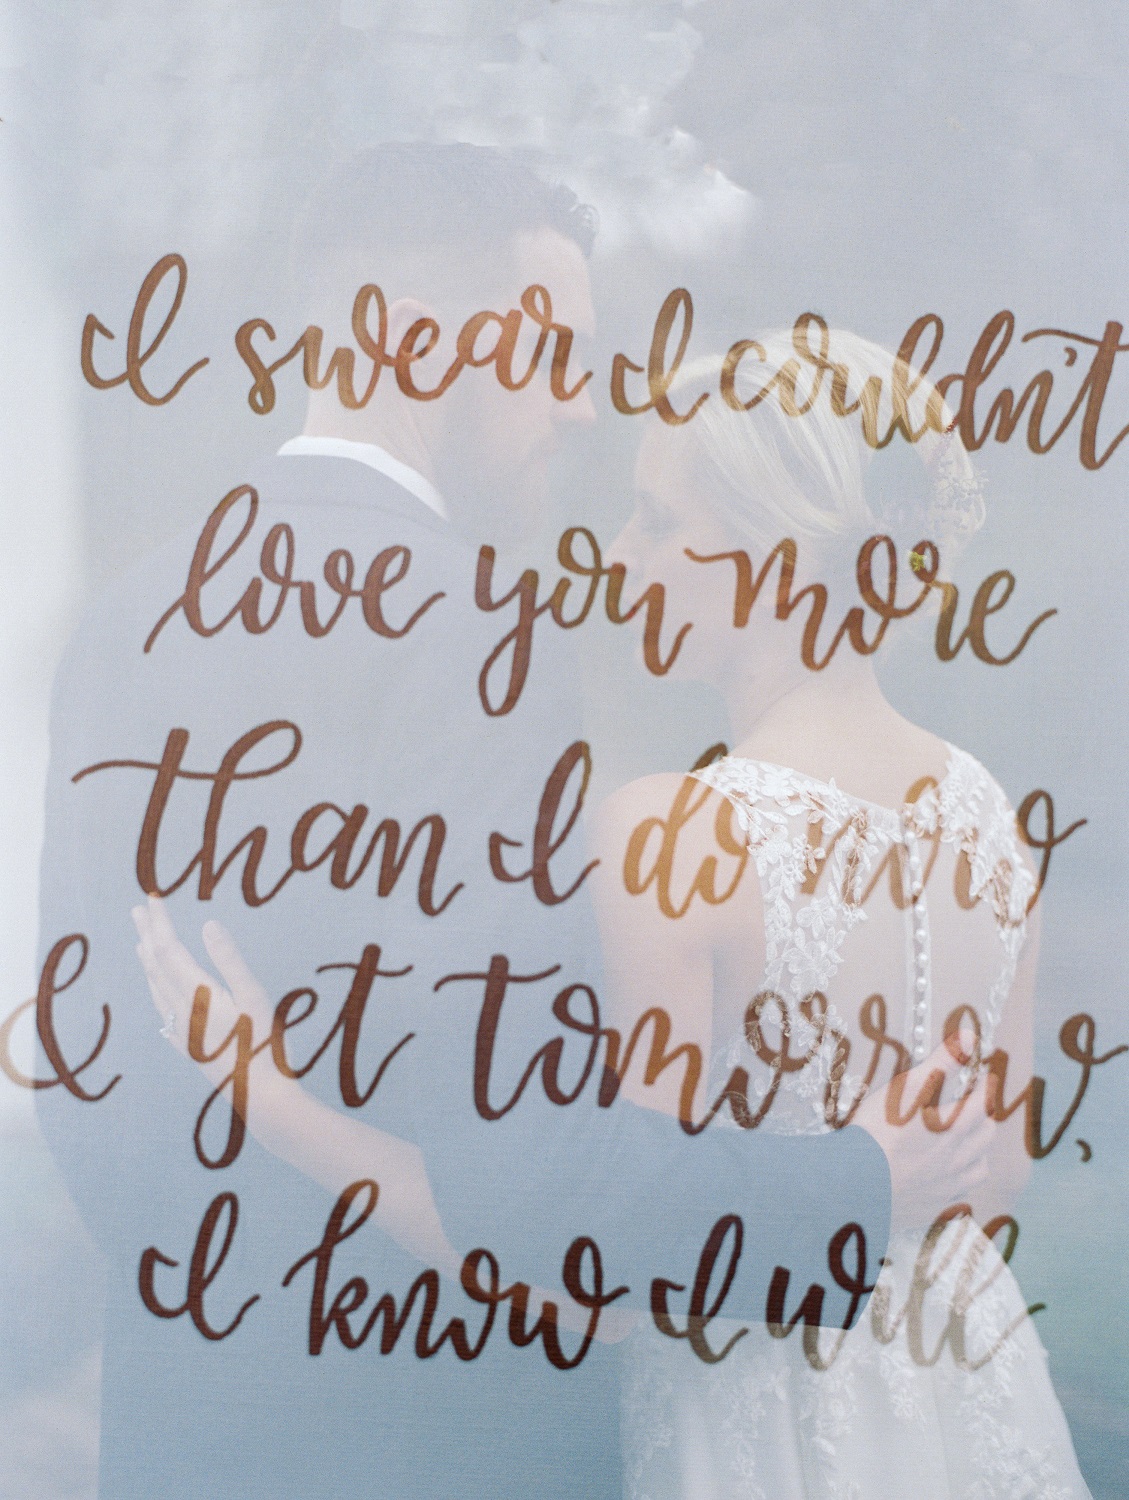 I swear I couldn't
love you more
than I do now
& yet tomorrow,
I know I will